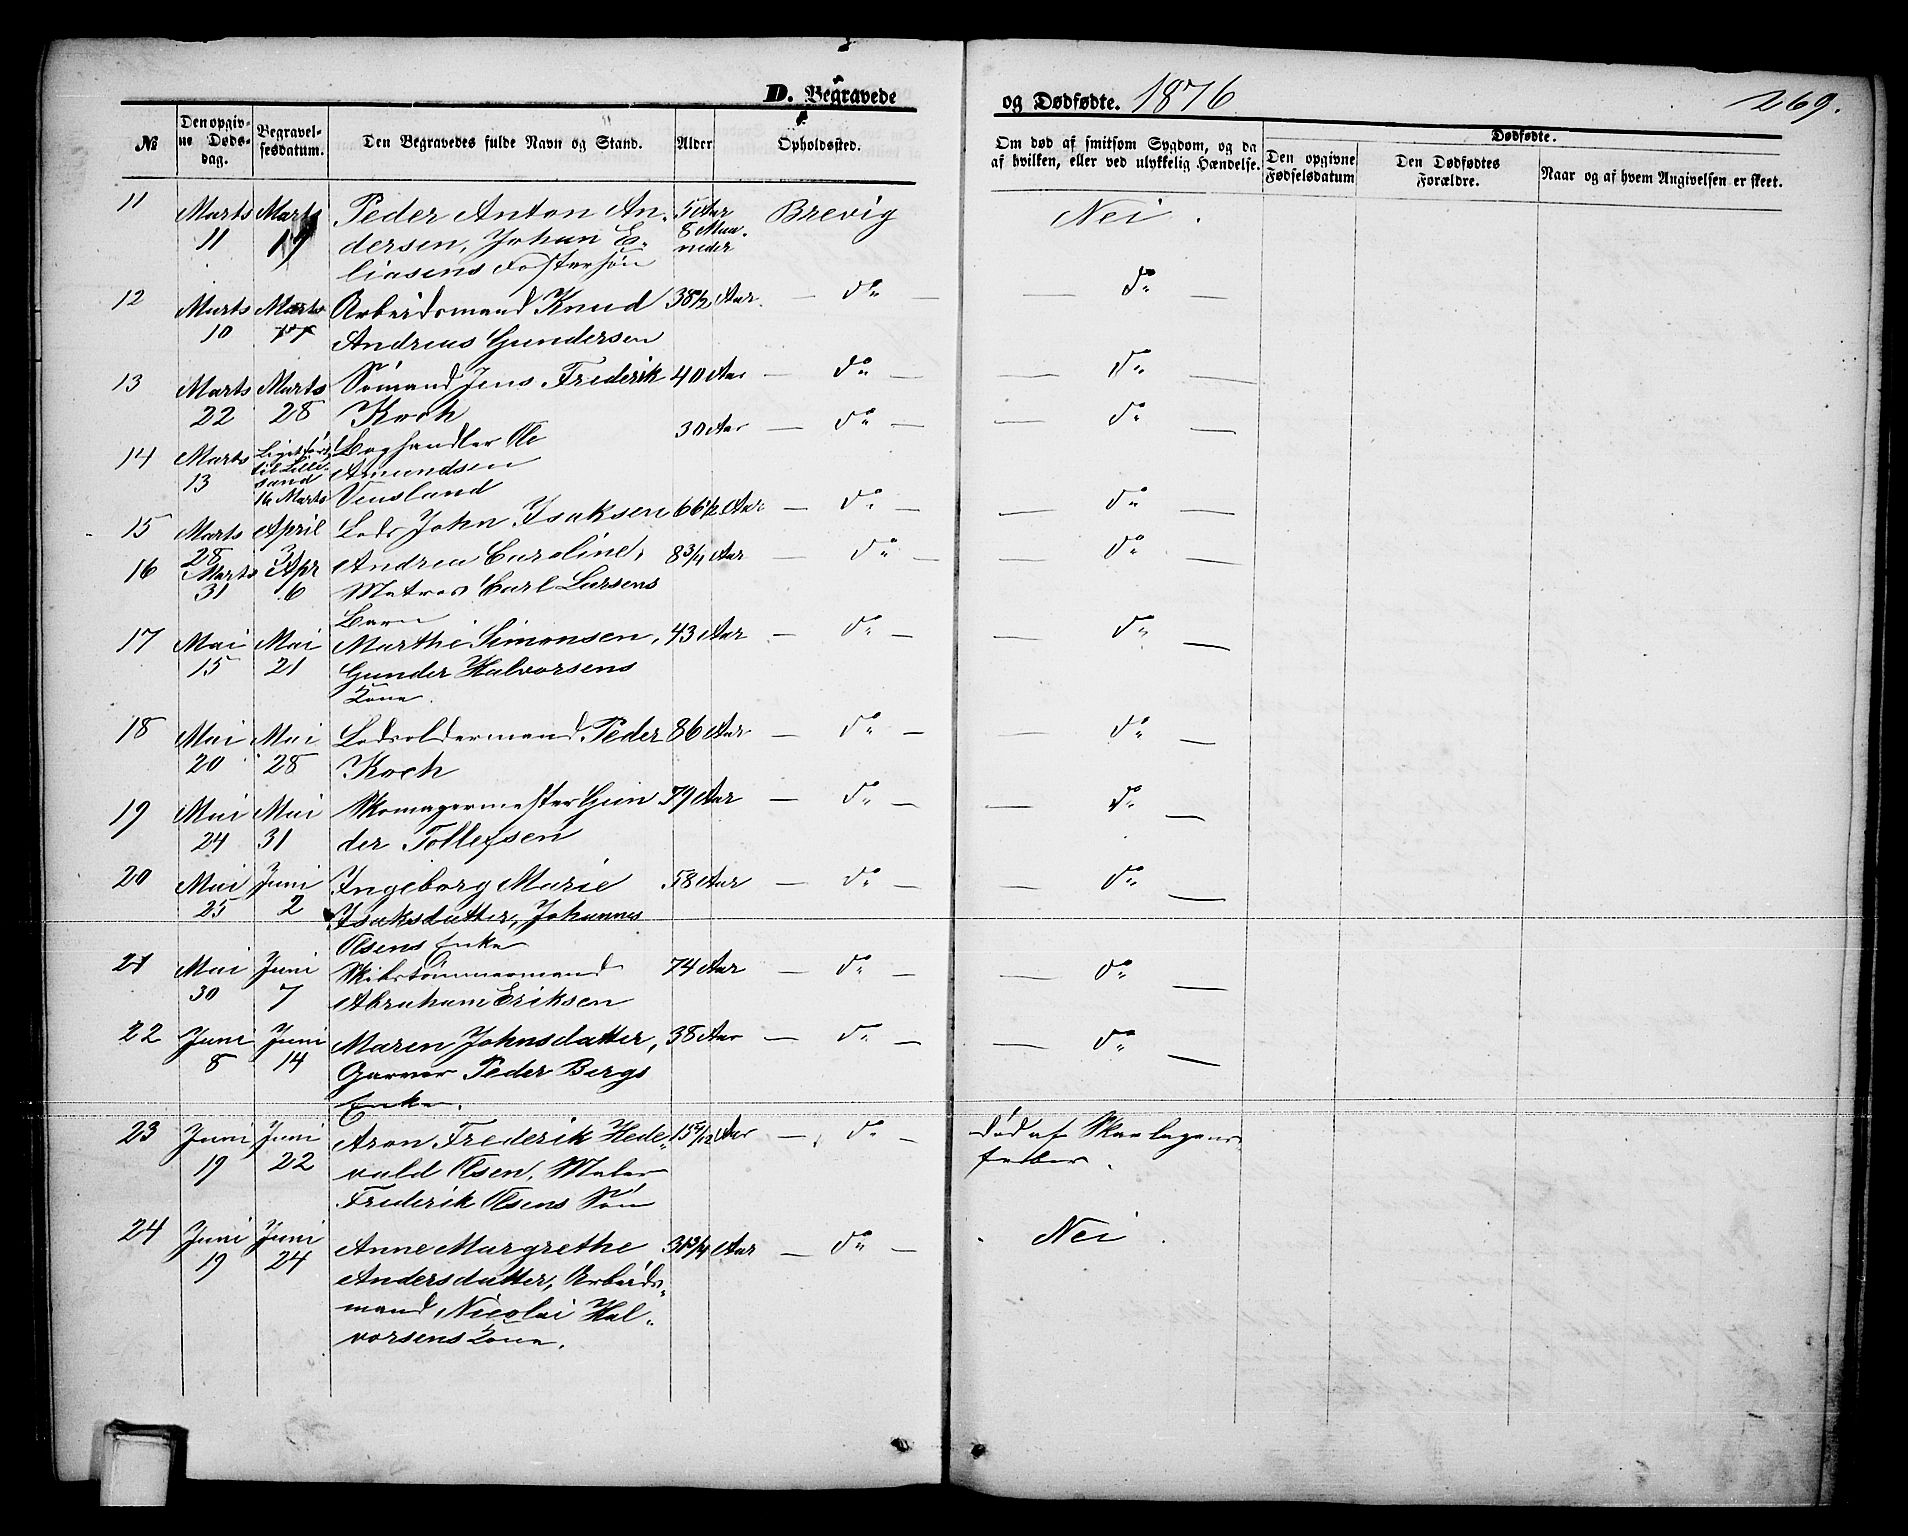 D. Begravede
og Dødfødte. 1876
269.
№
Den opgivne Dødsdag.
Begravelsesdatum.
Den Begravedes fulde Navn og Stand.
Alder
Opholdssted.
Om død af smitsom Sygdom, og da
af hvilken, eller ved ulykkelig Hændelse.
Dødfødte.
Den opgivne
Fødselsdatum
Den Dødfødtes
Forældre.
Naar og af hvem Angivelsen er skeet.
11 Marts Marts Peder Anton An- 5 Aar Brevig Nei.
11 17 dersen, Johan E- 8 Maa-
liasens Fostersøn neder
12 Marts Marts Arbeidsmand Knud 38½ Aar. — do — — do —
10 17 Andreas Gundersen
13 Marts Marts Sømand Jens Frederik 40 Aar — do — — do —
22 28 Koch
14 Marts Liget ført Boghandler Ole 30 Aar — do — — do —
13 til Lille- Amundsen
sand
16 Marts Vensland
15 Marts April Lods John Isaksen 66½ Aar — do — — do —
28 3
16 Marts Apr Andrea Caroline, 8¾ Aar — do — — do —
31 6 Matros Carl Larsens
Barn
17 Mai Mai Marthe Simonsen, 43 Aar — do — — do —
15 21 Gunder Halvorsens
Kone.
18 Mai Mai Lodsoldermand Peder 86 Aar — do — — do —
20 28 Koch
19 Mai Mai Skomagermester Gun 79 Aar — do — — do —
24 31 der Tollefsen
20 Mai Juni Ingeborg Marie 58 Aar — do — — do —
25 2 Isaksdatter, Johannes
Olsens Enke
21 Mai Juni Skibstømmermand 74 Aar — do — — do —
30 7 Abraham Eriksen
22 Juni Juni Maren Johnsdatter, 38 Aar — do — — do —
8 14 Garver Peder Bergs
Enke.
23 Juni Juni Aron Frederik Hede- 15 /12 Aar — do — Død af Skarlagens-
19 22 vald Olsen, Maler feber.
Frederik Olsens Søn
24 Juni Juni Anne Margrethe 31¾ Aar — do — Nei.
19 24 Andersdatter, Arbeids-
mand Nicolai Hal-
vorsens Kone.